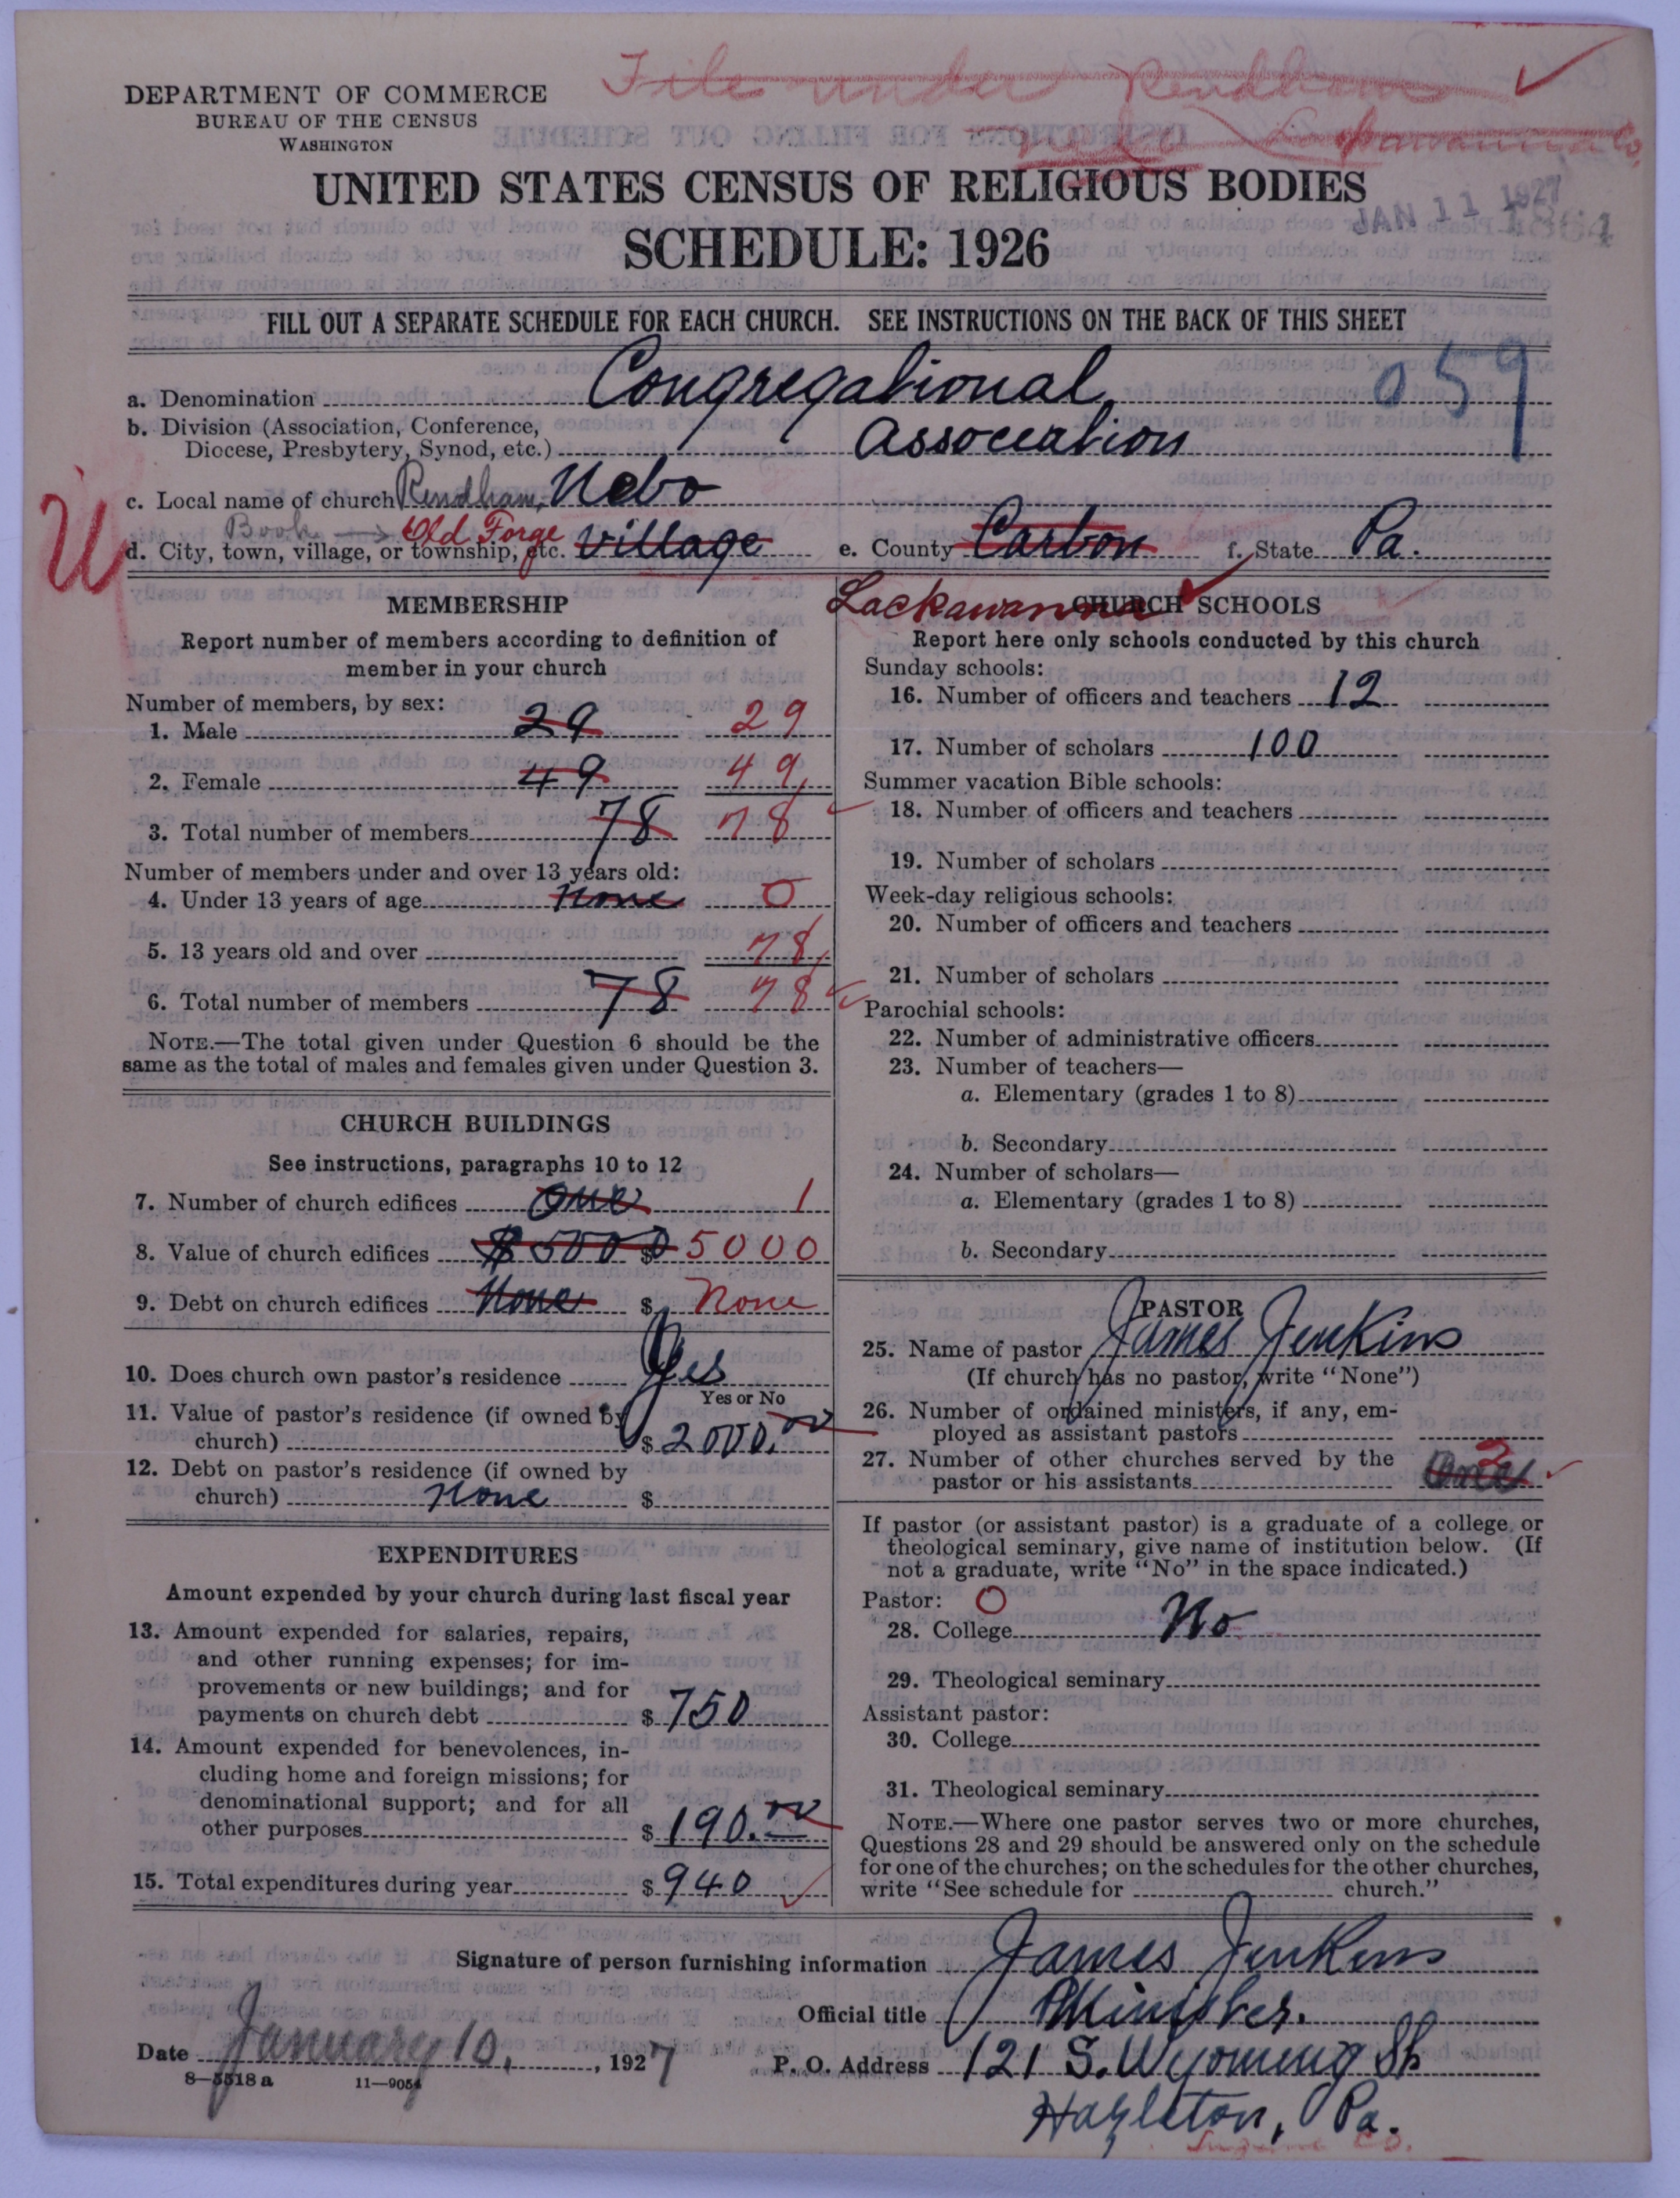 File under Rendham
Lackawanna Co.
DEPARTMENT OF COMMERCE
BUREAU OF THE CENSUS
WASHINGTON
UNITED STATES CENSUS OF RELIGIOUS BODIES
JAN 11 1927
SCHEDULE: 1926
FILL OUT A SEPARATE SCHEDULE FOR EACH CHURCH. SEE INSTRUCTIONS ON THE BACK OF THIS SHEET
a. Denomination Congregational 059
b. Division (Association, Conference,
Diocese, Presbytery, Synod, etc.) Association
c. Local name of church Rendham, Nebo
Book → Old Forge
d. City, town, village, or township, etc. Village e. County Carbon f. State Pa.
U
Lackawanna
MEMBERSHIP
Report number of members according to definition of
member in your church
Number of members, by sex:
1. Male 29 29
2. Female 49 49
3. Total number of members 78 78
Number of members under and over 13 years old:
4. Under 13 years of age None 0
5. 13 years old and over 78
6. Total number of members 78 78
NOTE.—The total given under Question 6 should be the
same as the total of males and females given under Question 3.
CHURCH BUILDINGS
See instructions, paragraphs 10 to 12
7. Number of church edifices One 1
8. Value of church edifices $5000 $ 5000
9. Debt on church edifices None $ None
10. Does church own pastor's residence Yes
Yes or No
11. Value of pastor's residence (if owned by
church) $ 2000.00
12. Debt on pastor's residence (if owned by
church) None $
EXPENDITURES
Amount expended by your church during last fiscal year
13. Amount expended for salaries, repairs,
and other running expenses; for im-
provements or new buildings; and for
payments on church debt $ 750
14. Amount expended for benevolences, in-
cluding home and foreign missions; for
denominational support; and for all
other purposes $ 190.00
15. Total expenditures during year $ 940
CHURCH SCHOOLS
Report here only schools conducted by this church
Sunday schools:
16. Number of officers and teachers 12
17. Number of scholars 100
Summer vacation Bible schools:
18. Number of officers and teachers
19. Number of scholars
Week-day religious schools:
20. Number of officers and teachers
21. Number of scholars
Parochial schools:
22. Number of administrative officers
23. Number of teachers—
a. Elementary (grades 1 to 8)
b. Secondary
24. Number of scholars—
a. Elementary (grades 1 to 8)
b. Secondary
PASTOR
25. Name of pastor James Jenkins
(If church has no pastor, write "None")
26. Number of ordained ministers, if any, em-
ployed as assistant pastors
27. Number of other churches served by the
pastor or his assistants
If pastor (or assistant pastor) is a graduate of a college or
theological seminary, give name of institution below. (If
not a graduate, write "No" in the space indicated.)
Pastor: 0
28. College No
29. Theological seminary
Assistant pastor:
30. College
31. Theological seminary
NOTE.—Where one pastor serves two or more churches,
Questions 28 and 29 should be answered only on the schedule
for one of the churches; on the schedules for the other churches,
write "See schedule for church."
Signature of person furnishing information James Jenkins
Official title Minister.
Date January 10, 1927 P. O. Address 121 S. Wyoming St
8—5518 a 11—9054
Hazleton, Pa.